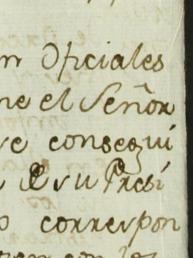 n Oficiales
ne el Señor
ve consegui
su Presi
o correspon
con los